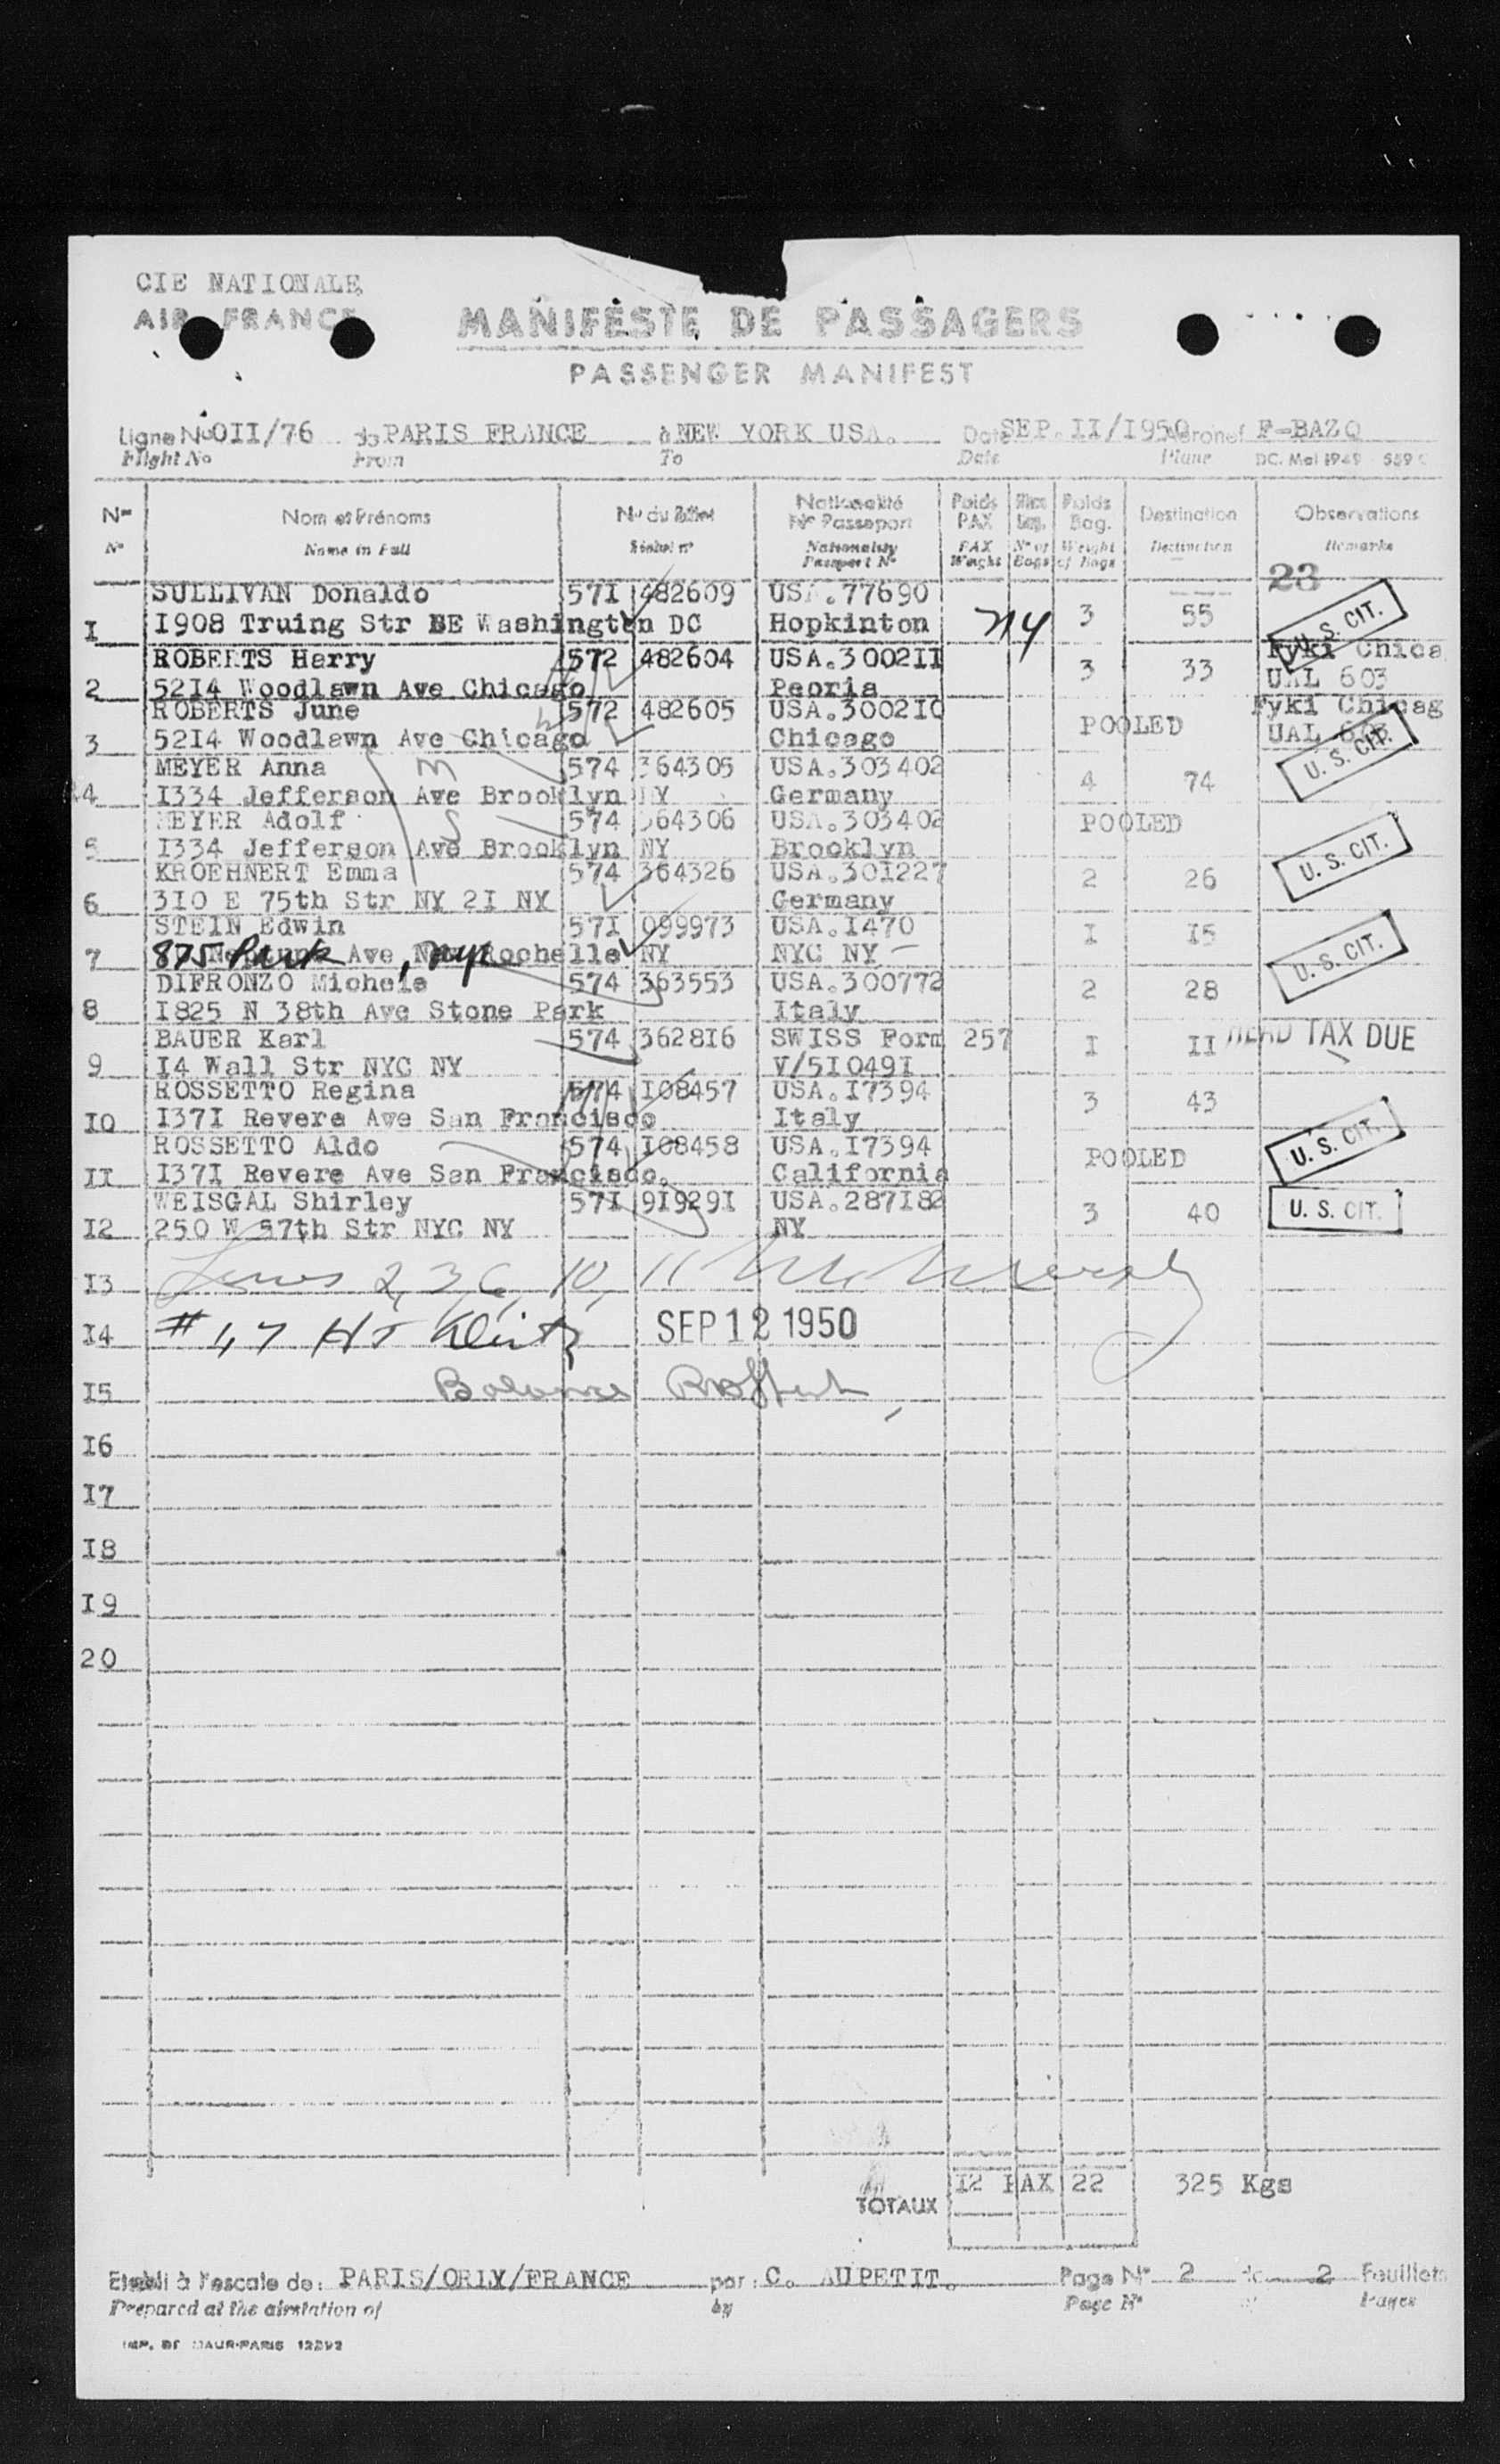 CIE NATIONALE
AIR FRANCE
MANIFESTE DE PASSAGERS
PASSENGER MANIFEST
Ligne No OII/76 de PARIS FRANCE à NEW YORK USA. Date SEP. II/I950 Aéronef F-BAZQ
Flight No From To Date Plane DC. Mai 1949 - 559
No Nom et Prénoms No du Billet Nationalité No Passeport Poids PAX Poids Bag. Destination Observations
No Name in Full Nationality Passport No PAX Weight No of Bags Weight of Bags Destination Remarks
23
SULLIVAN Donaldo 57I 482609 USA.77690
I I908 Truing Str SE Washington DC Hopkinton 3 55 U. S. CIT.
ROBERTS Harry 572 482604 USA.3002II Fyki Chica
2 52I4 Woodlawn Ave Chicago Peoria 3 33 UAL 603
ROBERTS June 572 482605 USA.3002I0 Fyki Chicag
3 52I4 Woodlawn Ave Chicago Chicago POOLED UAL 603 U. S. CIT.
MEYER Anna 574 364305 USA.303402
4 I334 Jefferson Ave Brooklyn NY Germany 4 74
MEYER Adolf 574 364306 USA.303402 POOLED
5 I334 Jefferson Ave Brooklyn NY Brooklyn U. S. CIT.
KROEHNERT Emma 574 364326 USA.30I227
6 3I0 E 75th Str NY 2I NY Germany 2 26
STEIN Edwin 57I 099973 USA.I470
7 875 Park Ave, Rochelle NY NYC NY I I5 U. S. CIT.
DIFRONZO Michele 574 363553 USA.300772
8 I825 N 38th Ave Stone Park Italy 2 28
BAUER Karl 574 3628I6 SWISS Form 257
9 I4 Wall Str NYC NY V/5I049I I II HEAD TAX DUE
ROSSETTO Regina 574 I08457 USA.I7394
I0 I37I Revere Ave San Francisco Italy 3 43
ROSSETTO Aldo 574 I08458 USA.I7394
II I37I Revere Ave San Francisco. California POOLED U. S. CIT.
WEISGAL Shirley 57I 9I929I USA.287I82
I2 250 W 57th Str NYC NY NY 3 40 U. S. CIT.
I3 Lines 2, 3, 6, 10, 11
I4 SEP 12 1950
I5 Balance
I6
I7
I8
I9
20
TOTAUX I2 PAX 22 325 Kgs
Etabli à l'escale de: PARIS/ORLY/FRANCE par: C. AUPETIT. Page No 2 de 2 Feuillets
Prepared at the airstation of by Page No Pages